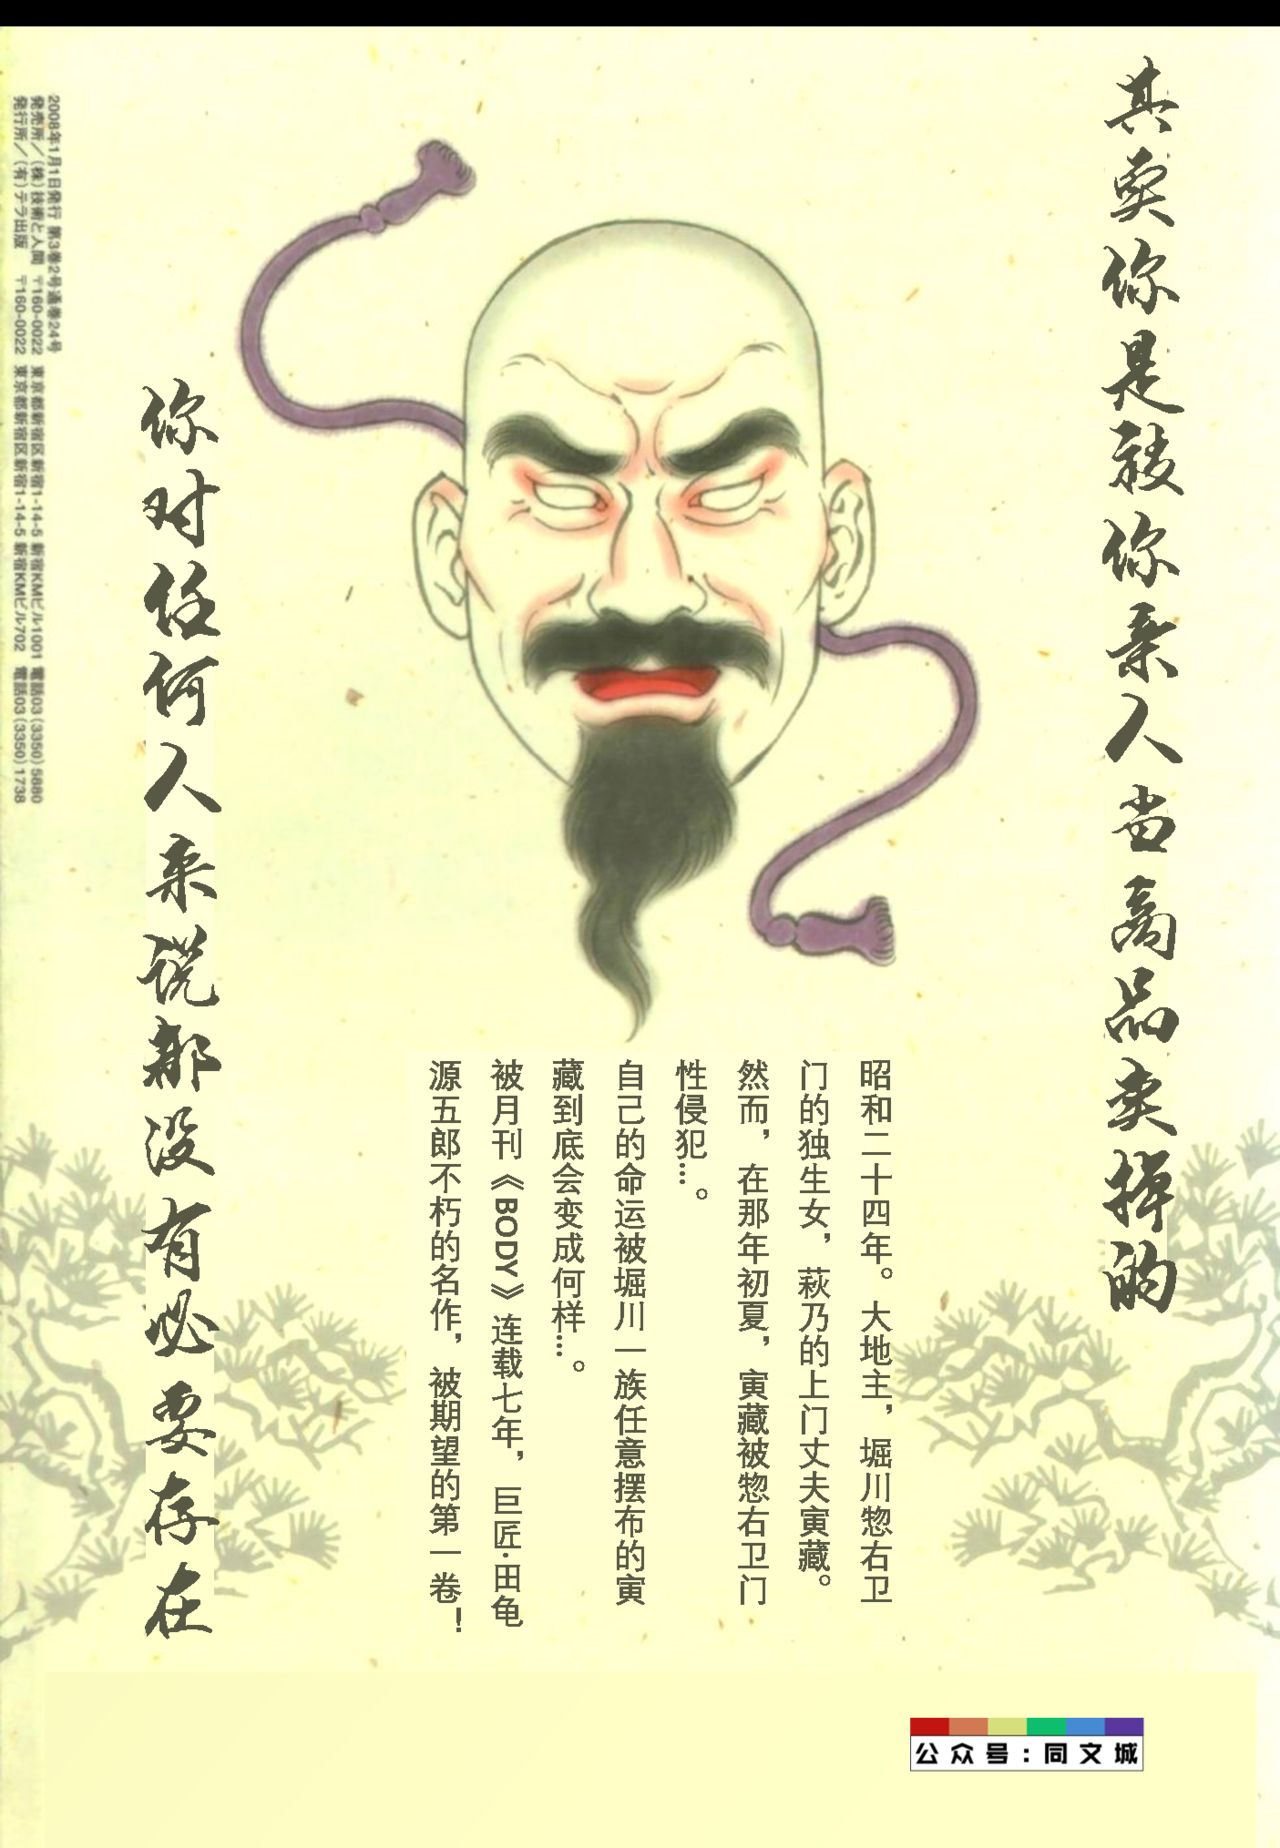 其实你是被你亲人当商品卖掉的
你对任何人来说都没有必要存在
昭和二十四年。大地主，堀川惣右卫
门的独生女，萩乃的上门丈夫寅藏。
然而，在那年初夏，寅藏被惣右卫门
性侵犯…。
自己的命运被堀川一族任意摆布的寅
藏到底会变成何样…。
被月刊《BODY》连载七年，巨匠·田龟
源五郎不朽的名作，被期望的第一卷！
2008年1月1日発行 第3巻2号通巻24号
発売所／(株)技術と人間 〒160-0022 東京都新宿区新宿1-14-5 新宿KMビル1001 電話03(3350)5880
発行所／(有)テラ出版 〒160-0022 東京都新宿区新宿1-14-5 新宿KMビル702 電話03(3350)1738
公众号：同文城